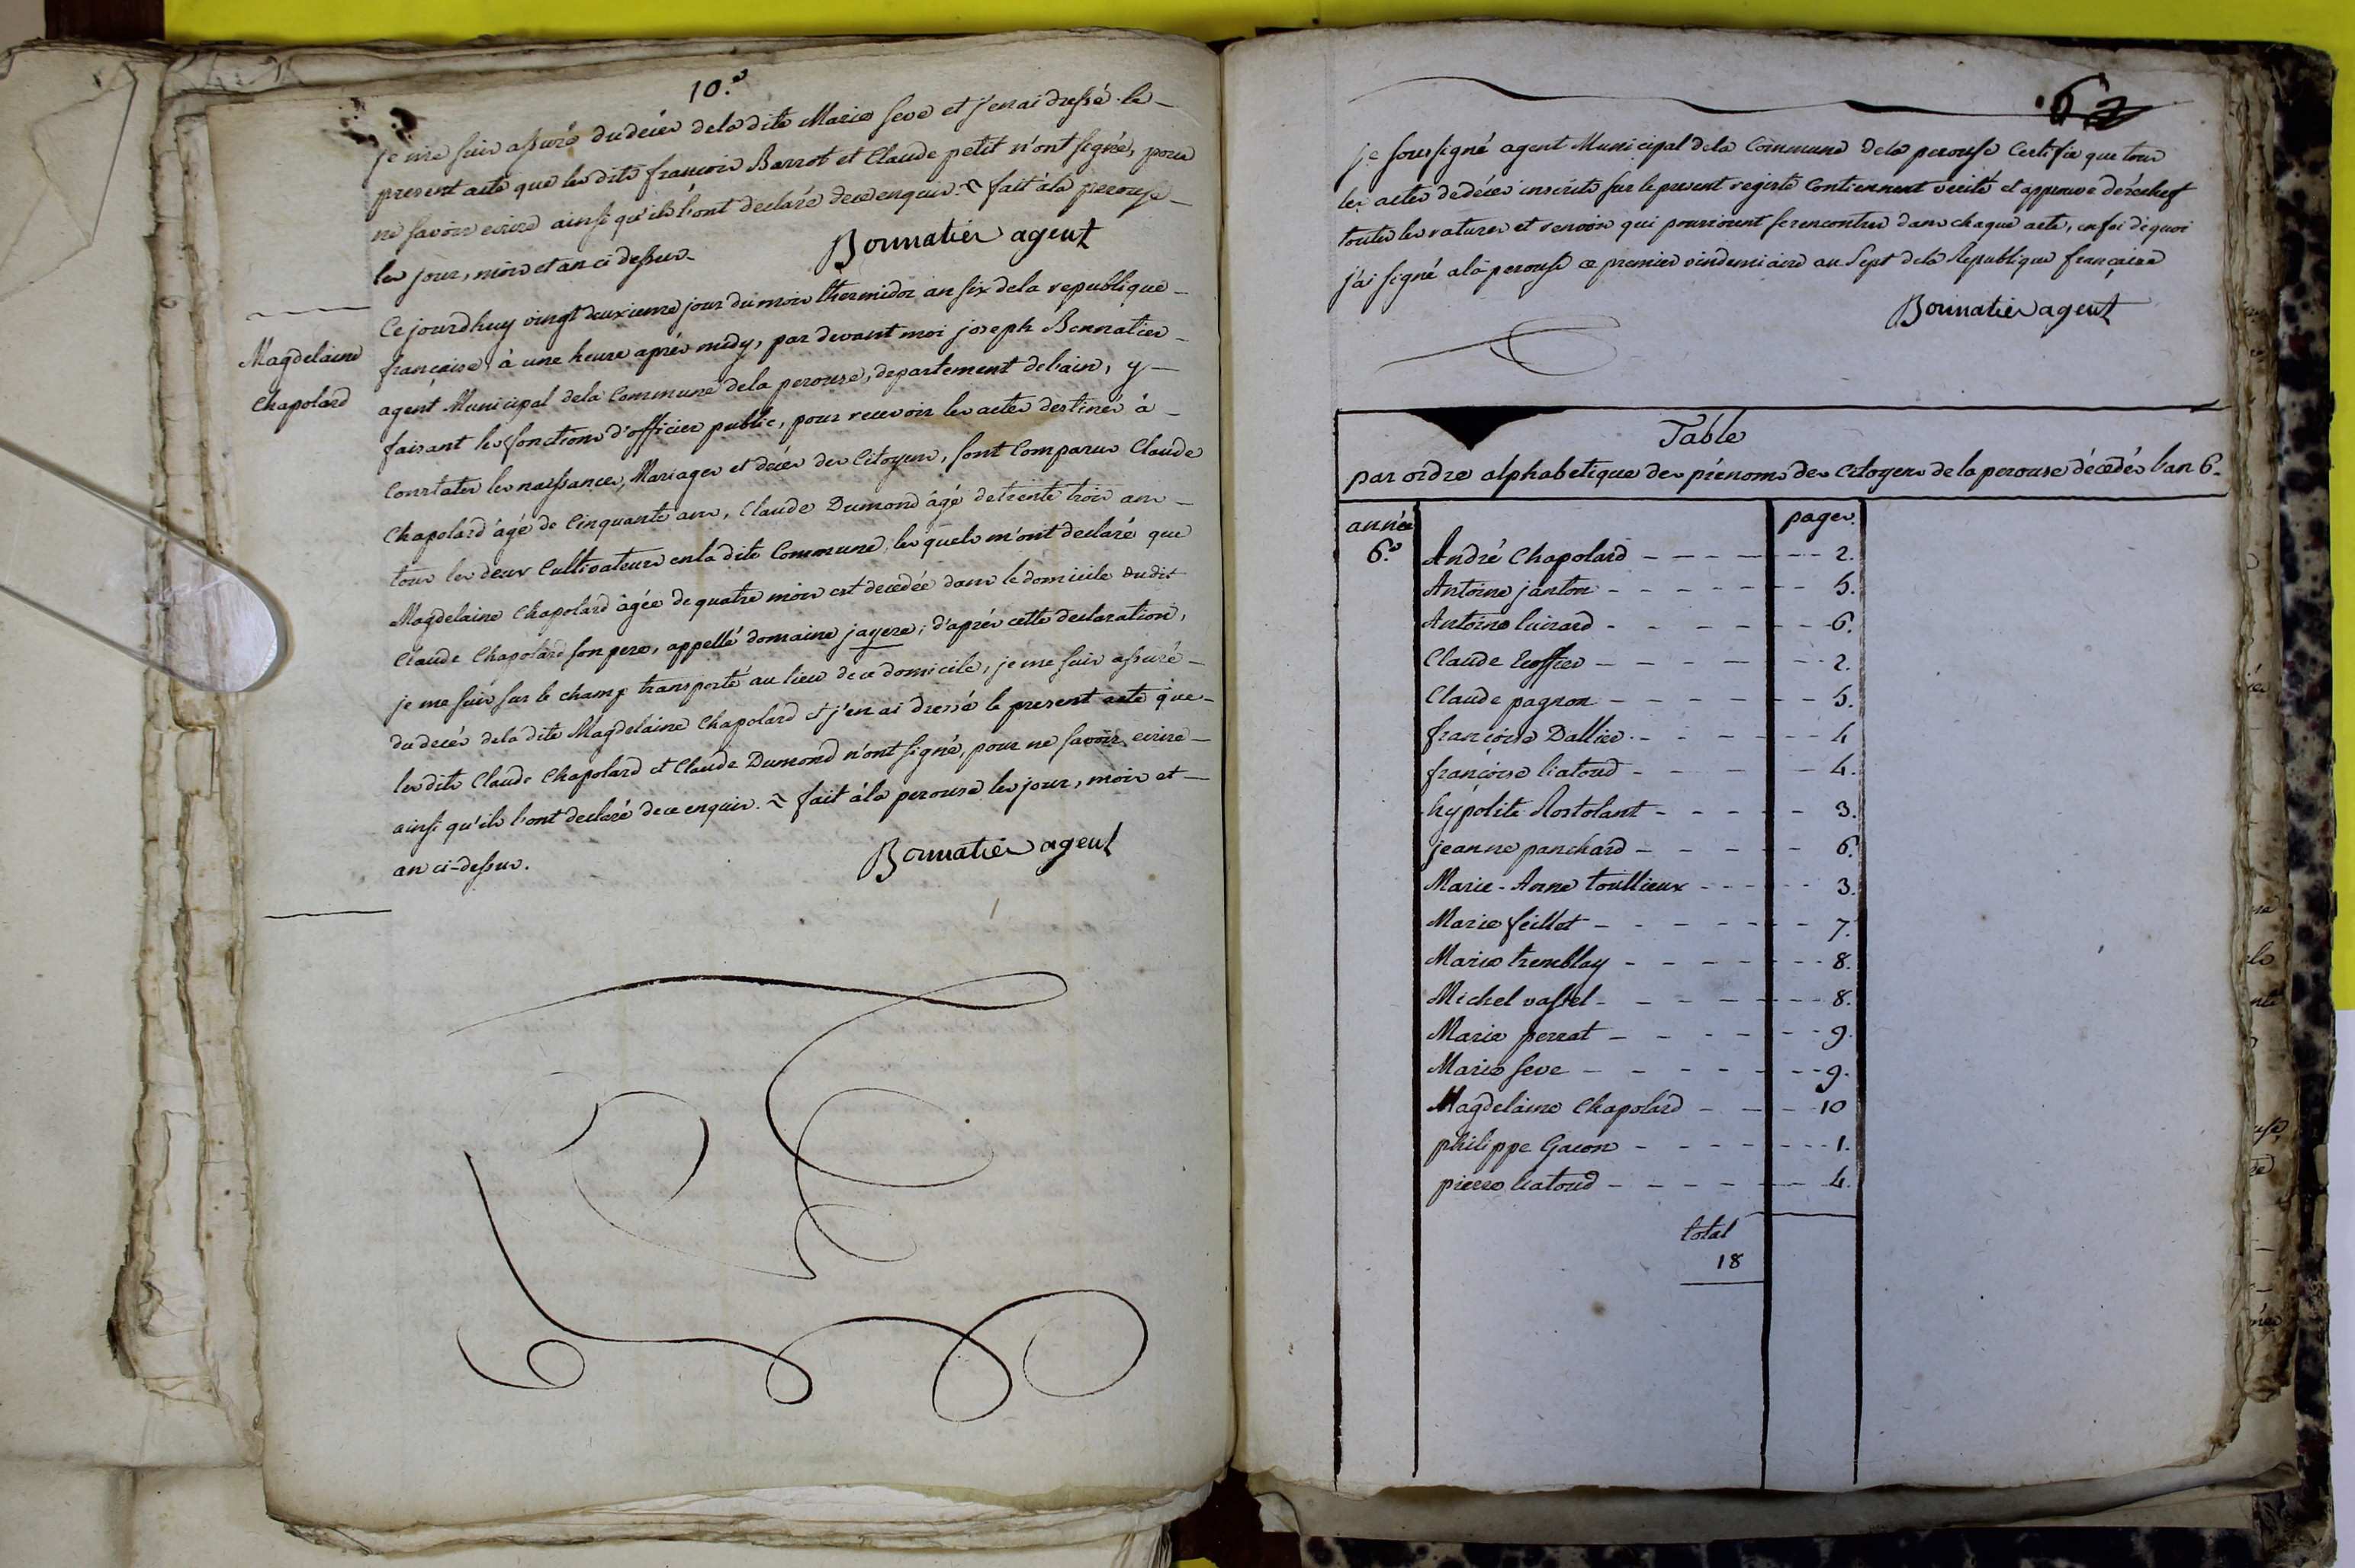 10.e
je me suis assuré du decés de la dite Marie seve et j'en ai dressé le
present acte que les dits francois Barrot et Claude petit n'ont signé, pour
ne savoir ecrire ainsi qu'ils l'ont declaré de ce enquis. = fait à la perouse
les jour, mois et an ci dessus. Bonnatier agent
Magdelaine
Chapolard
Ce jourdhuy vingt deuxieme jour du mois thermidor an six de la republique
française à une heure après midy, par devant moi joseph Bonnatier
agent Municipal de la Commune de la perouse, departement de l'ain, y
faisant les fonctions d'officier public, pour recevoir les actes destinés à
Constater les naissances, Mariages et décès des Citoyens, sont Comparus Claude
Chapolard âgé de Cinquante ans, Claude Dumond âgé de trente trois ans
tous les deux Cultivateurs en la dite Commune, les quels m'ont declaré que
Magdelaine Chapolard âgée de quatre mois est decedée dans le domicile dudit
Claude Chapolard son pere, appellé domaine jayere; d'après cette declaration,
je me suis sur le champ transporté au lieu de ce domicile, je me suis assuré
du decés de la dite Magdelaine Chapolard et j'en ai dressé le present acte que
les dits Claude Chapolard et Claude Dumond n'ont signé, pour ne savoir ecrire
ainsi qu'ils l'ont declaré de ce enquis. = fait à la perouse les jour, mois et
an ci-dessus. Bonnatier agent
je soussigné agent Municipal de la Commune de la perouse Certifie que tous
les actes de décès inscrits sur le present registre Contiennent verité et approuve dérechef
toutes les ratures et renvois qui pourroient se rencontrer dans chaque acte, en foi de quoi
j'ai signé a la perouse ce premier vindemiaire an Sept de la Republique française
Bonnatier agent
Table
par ordre alphabetique des prénoms des Citoyens de la perouse décédés l'an 6.
année pages.
6.e André Chapolard - - - - - - - 2.
Antoine janton - - - - - - - 5.
Antoine luirard - - - - - - - 6.
Claude Ecoffier - - - - - - - 2.
Claude pagnon - - - - - - - 5.
françoise Dallier - - - - - - 4
françoise liatoud - - - - - 4.
hypolite Rostolant - - - - - 3.
jeanne panchard - - - - - 6.
Marie-Anne toullieux - - - - - 3.
Marie feillet - - - - - - - 7.
Marie tremblay - - - - - - - 8.
Michel vassel - - - - - - - 8.
Marie perrat - - - - - - 9.
Marie seve - - - - - - - 9.
Magdelaine Chapolard - - - 10
philippe Gacon - - - - - - - 1.
pierre liatoud - - - - - - - 4.
total
18